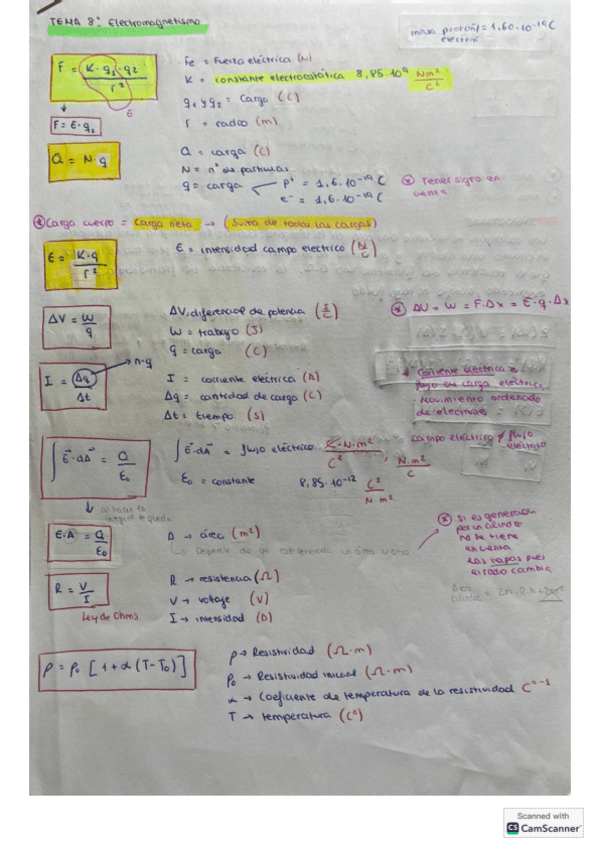 TEMA 8: Electromagnetismo
masa protón/electrón = 1,60·10⁻¹⁹ C
F = K·q₁·q₂ / r²
E
F = E·q₂
Fe = Fuerza eléctrica (N)
K = constante electroestática 8,85·10⁹ Nm²/C²
q₁ y q₂ = Carga (C)
r = radio (m)
Q = N·q
Q = carga (C)
N = nº de partículas
q = carga p⁺ = 1,6·10⁻¹⁹ C
e⁻ = 1,6·10⁻¹⁹ C
* Tener signo en cuenta
* Carga cuerpo = carga neta → (suma de todas las cargas)
E = K·q / r²
E = intensidad campo eléctrico (N/C)
ΔV = W / q
ΔV = diferencial de potencia (J/C)
W = trabajo (J)
q = carga (C)
* ΔU = W = F·Δx = E·q·Δx
I = Δq / Δt
n·q
I = corriente eléctrica (A)
Δq = cantidad de carga (C)
Δt = tiempo (s)
* Corriente eléctrica =
flujo de carga eléctrica.
Movimiento ordenado
de electrones
∫E·dA = Q / E₀
∫E·dA = flujo eléctrico C·N·m² / C² , N·m² / C
E₀ = constante 8,85·10⁻¹² C² / N·m²
campo eléctrico ≠ flujo eléctrico
↓ al hacer la
integral te queda
E·A = Q / E₀
A → área (m²)
* Si es generada
por un cilindro
no se tiene
en cuenta
las tapas pues
el radio cambia
Área cilindro = 2π·R·h
R = V / I
Ley de Ohms.
R → resistencia (Ω)
V → voltaje (V)
I → intensidad (A)
ρ = ρ₀ [1+α (T-T₀)]
ρ → Resistividad (Ω·m)
ρ₀ → Resistividad inicial (Ω·m)
α → Coeficiente de temperatura de la resistividad Cº⁻¹
T → temperatura (Cº)
Scanned with
CS CamScanner